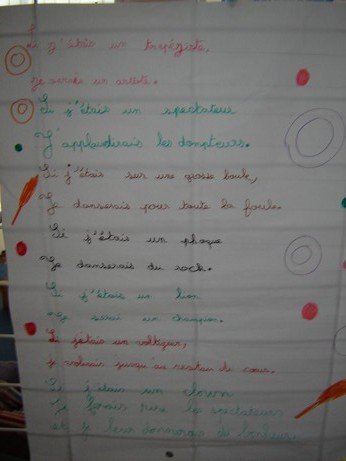 Si j'étais un trapéziste,
Je serais un artiste.
Si j'étais un spectateur
J'applaudirais les dompteurs.
Si j'étais sur une grosse boule,
Je danserais pour toute la foule.
Si j'étais un phoque
Je danserais du rock.
Si j'étais un lion
Je serai un champion.
Si j'étais un voltigeur,
je volerais jusqu'au du cœur.
Si j'étais un clown
Je ferais rire les spectateurs
et je leur donnerais du bonheur.